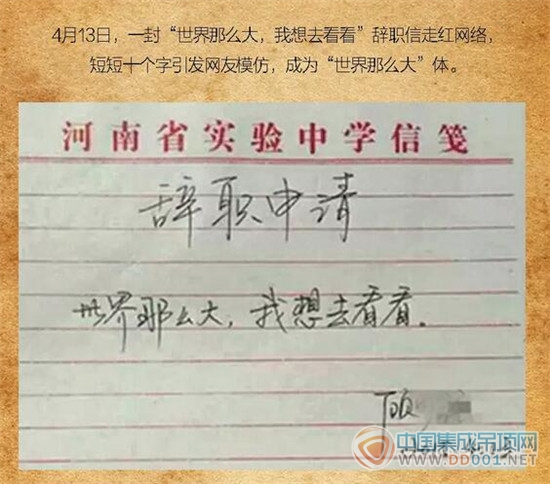 4月13日，一封“世界那么大，我想去看看”辞职信走红网络，
短短十个字引发网友模仿，成为“世界那么大”体。
河南省实验中学信笺
辞职申请
世界那么大，我想去看看.
顾
中国集成吊顶网
WWW.DD001.NET